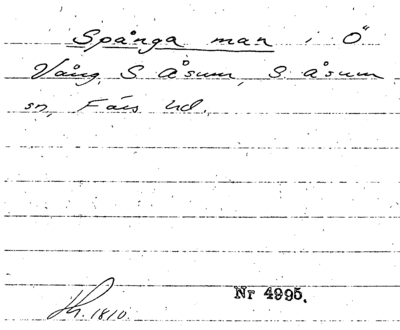 Spånga man i Ö
Vång, S Åsum, S. Åsum
sn, Färs hd.
Nr 4995.
1810.